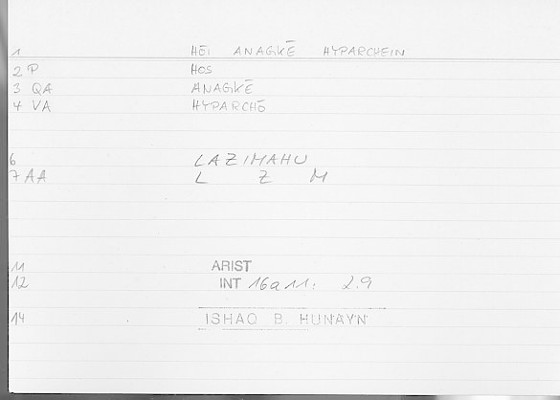 1 HĒI ANAGKĒ HYPARCHEIN
2 P HOS
3 QA ANAGKĒ
4 VA HYPARCHŌ
6 LAZIMAHU
7 AA L Z M
11 ARIST
12 INT 16a11: 2.9
14 ISHAQ B. HUNAYN